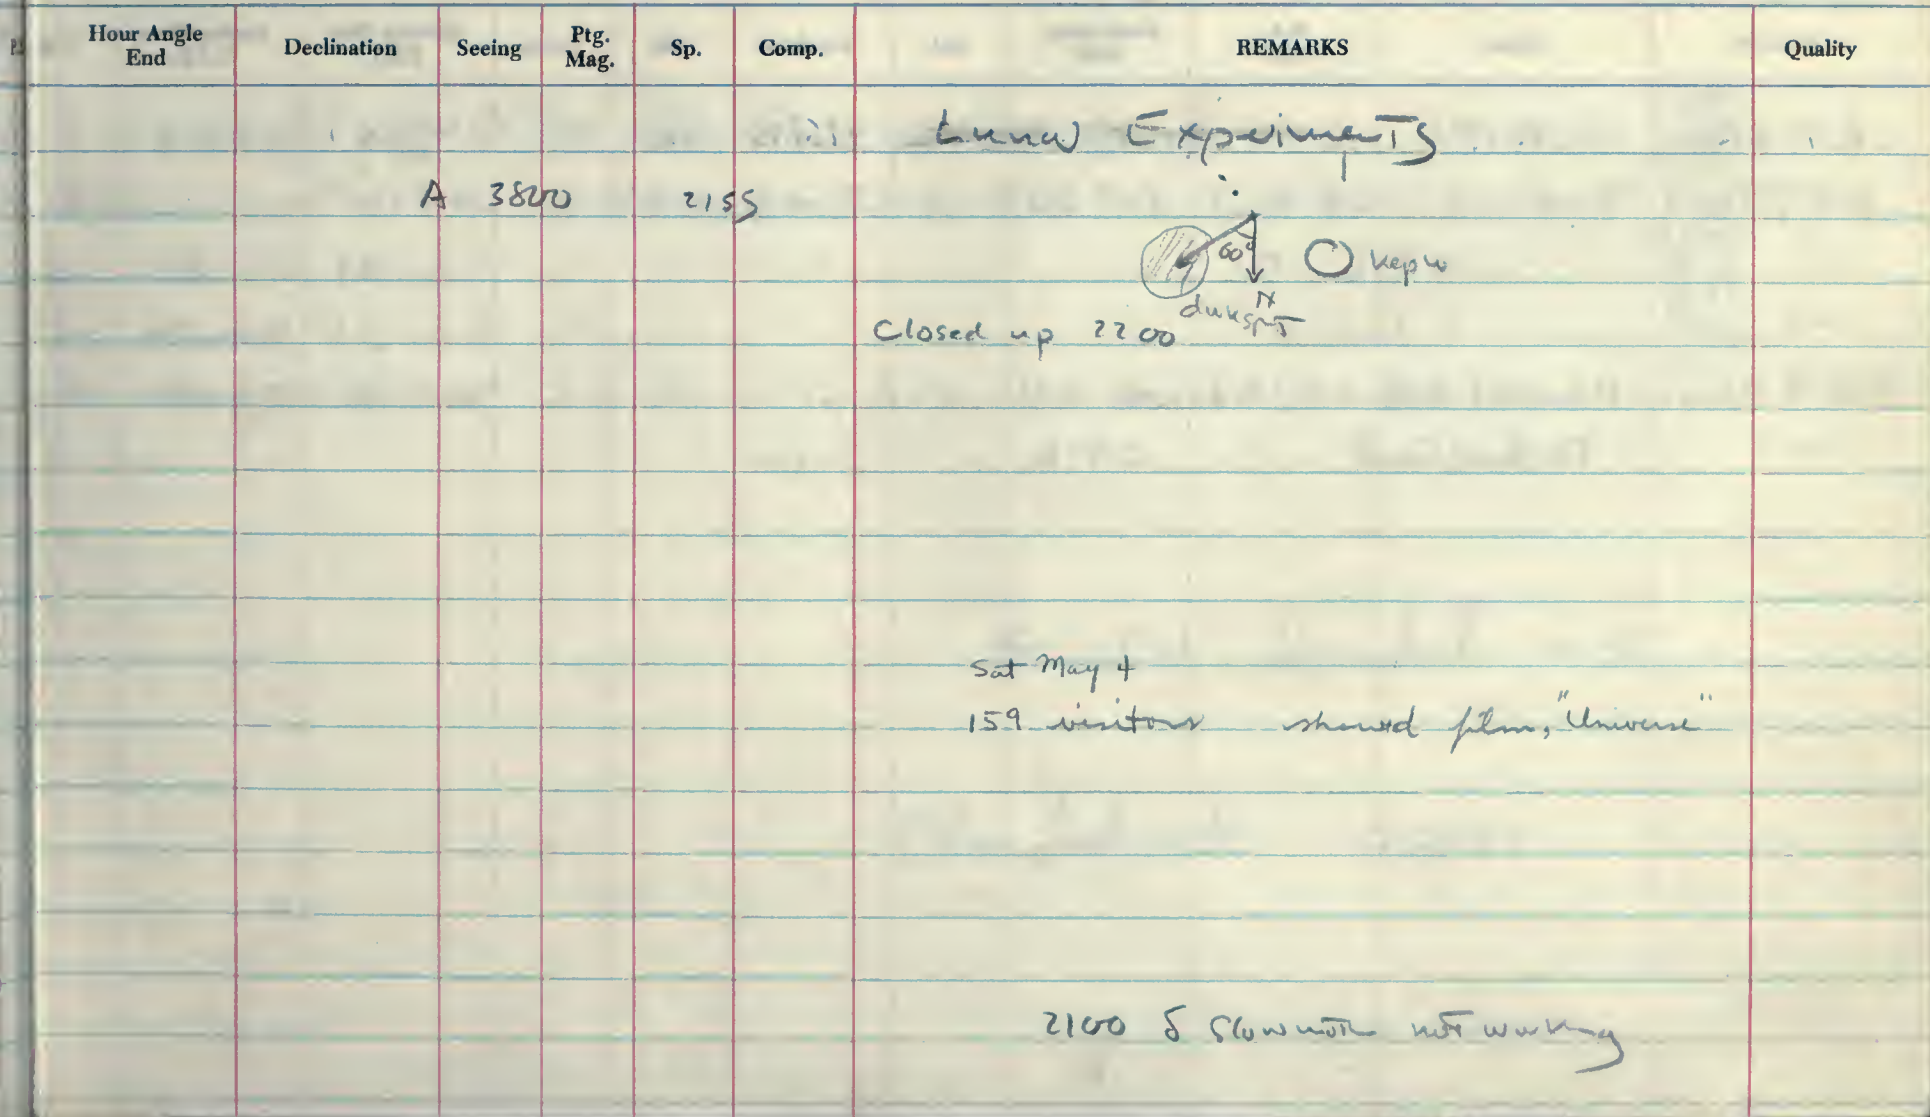 Hour Angle End Declination Seeing Ptg. Mag. Sp. Comp. REMARKS Quality
Lunar Experiments
A 3800 2155
60° Kepler
N
dark spot
Closed up 2200
Sat May 4
159 visitors showed film, "Universe"
2100 δ slow motion not working